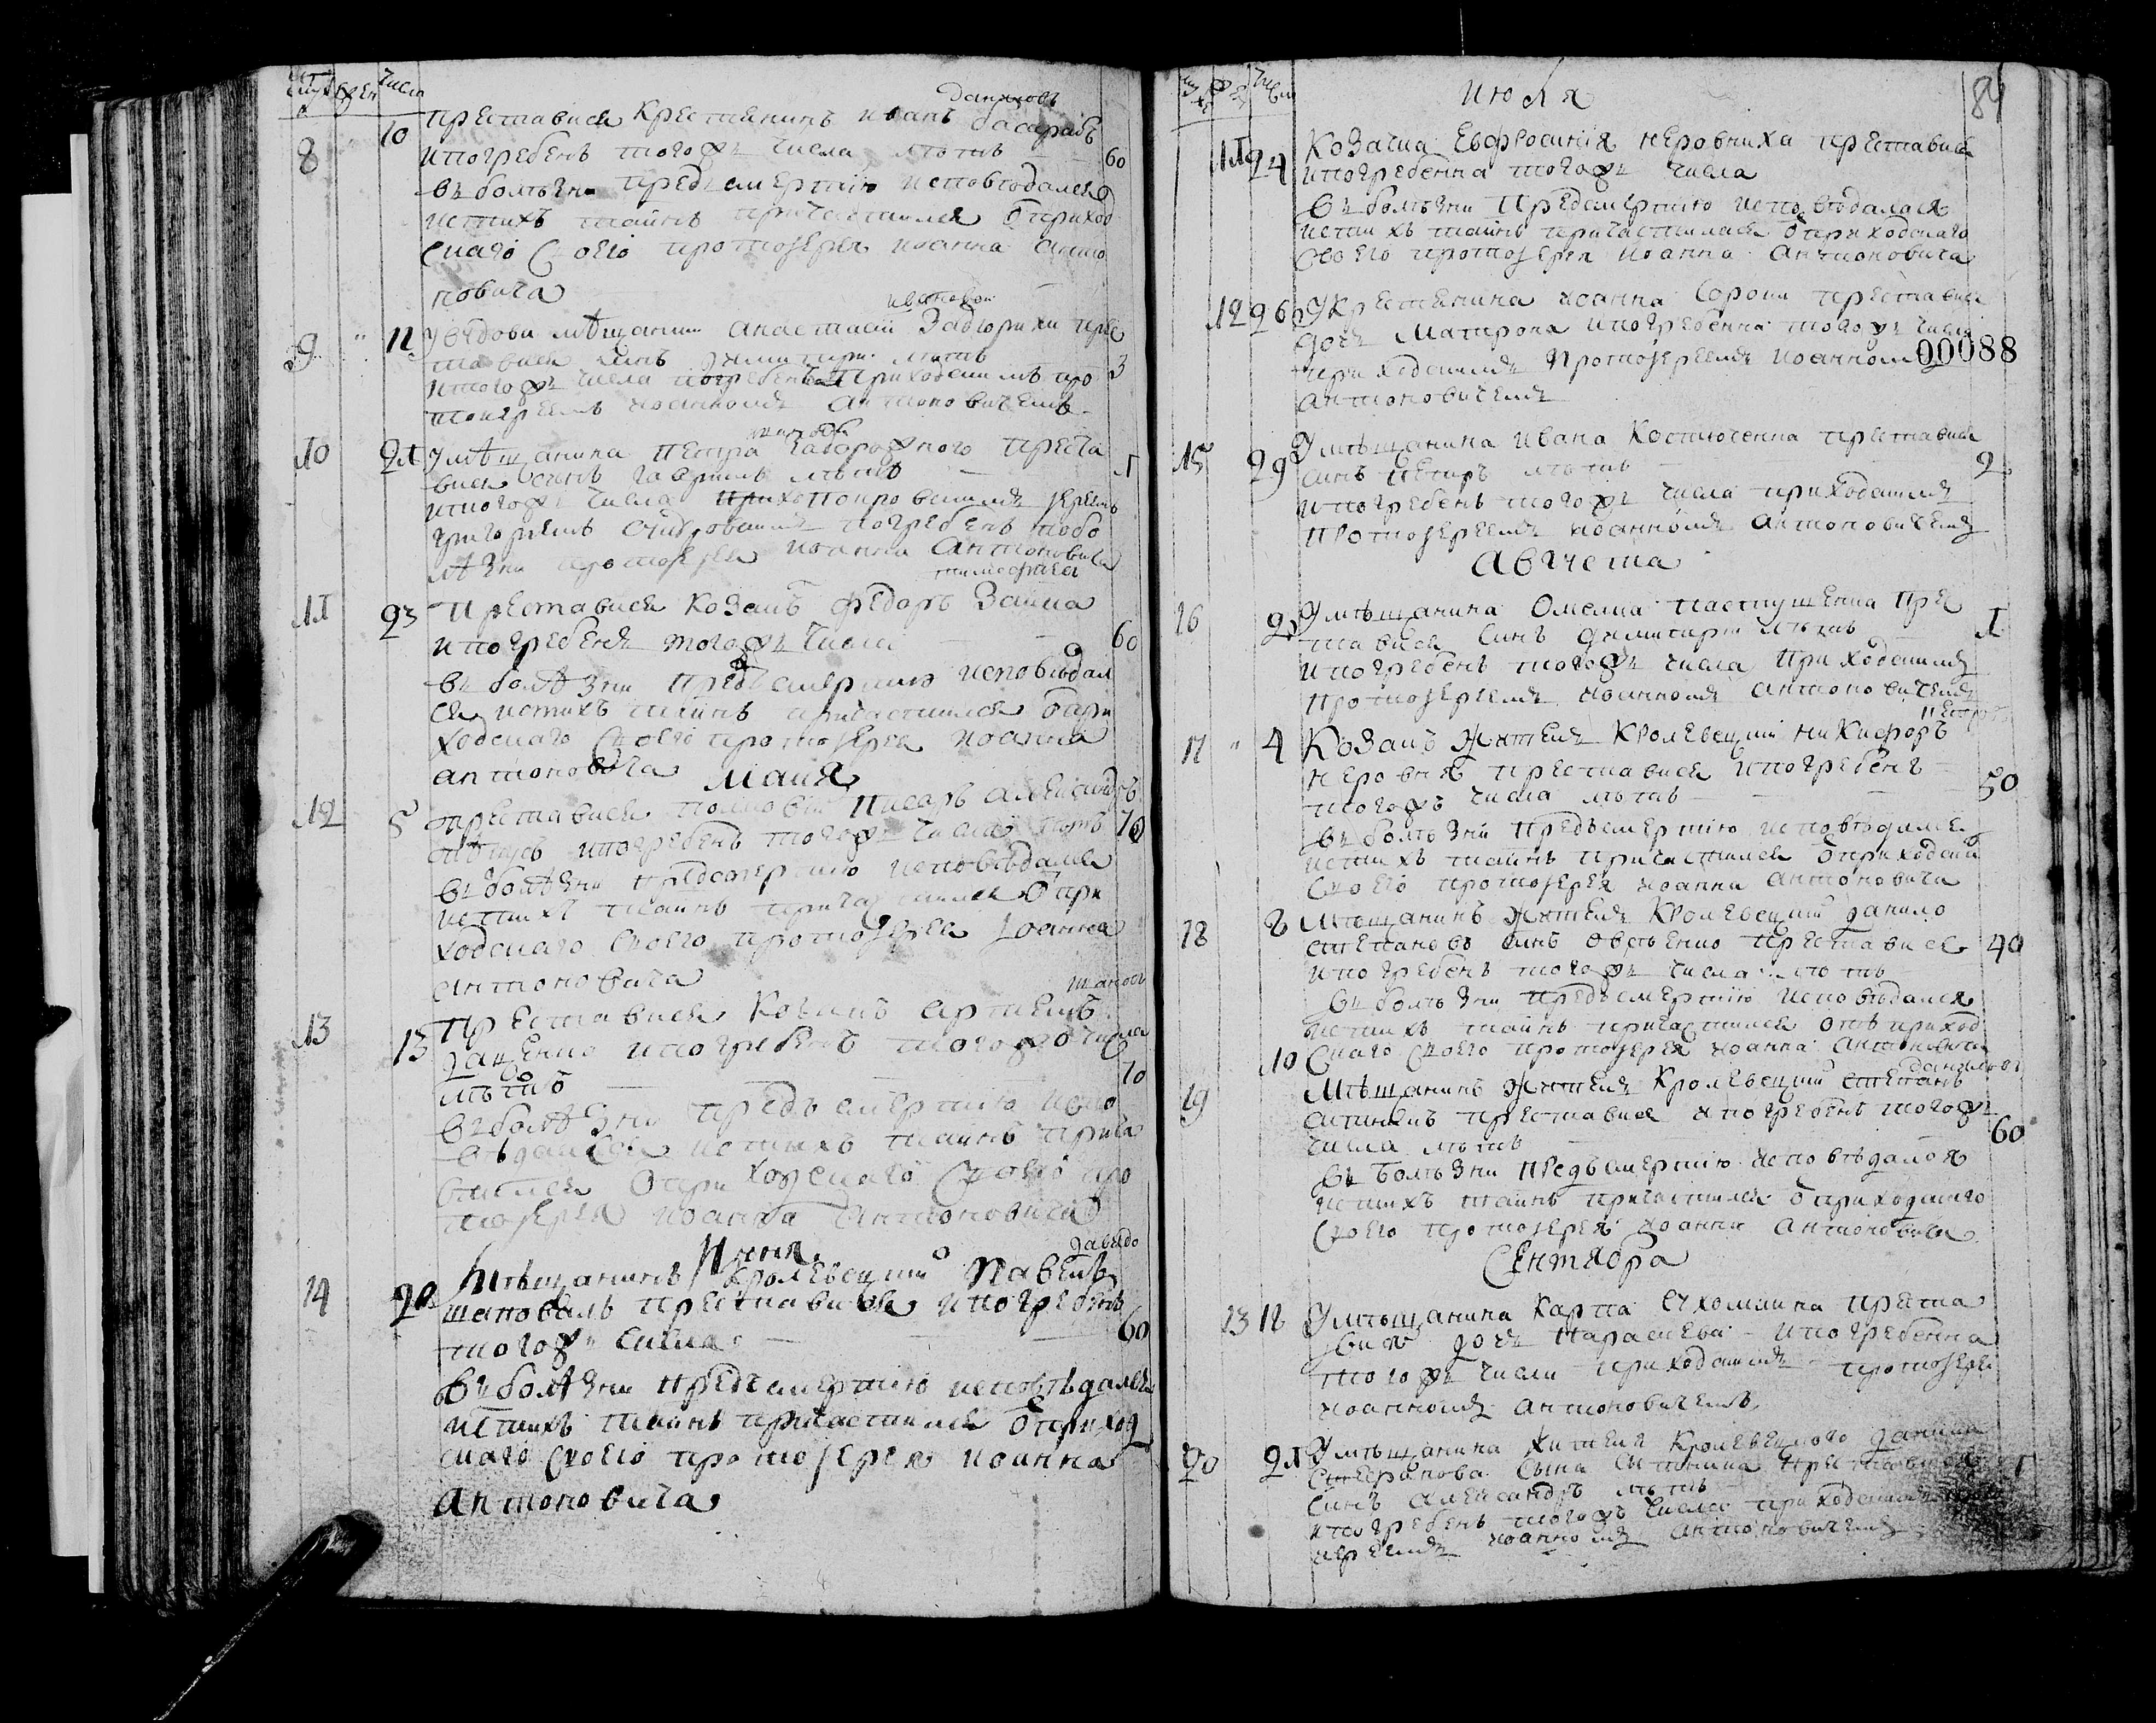 числа
Даниловъ
8 10 преставися крестянинъ иванъ басарабъ
и погребенъ того жъ числа лѣтъ 60
въ болѣзни предъ смертию исповѣдался
и с тихъ таинъ причастился ѿ приход
скаго своего протоіерея иоанна анто
новича
ивановой
9 12 У вдови мѣщанки анастасіи престависи синъ димитрій лѣтъ 3
и того жъ числа погребенъ приходскимъ про
тоиереемъ иоанномъ антоновичемъ
10 21 У мѣщанина петра запорожного преста
вися синъ гавриилъ лѣтъ 1
и того жъ числа покровскимъ иереемъ
григориемъ погребенъ по бо
лѣзни протоіерея иоанна антоновича
тимофѣевъ
11 23 Преставися козакъ федоръ Заика
и погребенъ того жъ числа 60
въ болѣзни предъ смертию исповѣдал
ся и с тихъ таинъ причастился ѿ при
ходскаго своего протоіерея иоанна
антоновича
Маия
12 5 преставися полковій писаръ александръ
и погребенъ того жъ числа лѣтъ 70
въ болѣзни предсмертию исповѣдался
и с тихъ таинъ причастился ѿ при
ходскаго своего протоіерея иоанна
антоновича
13 13 Преставися козакъ артемъ
и погребенъ того жъ числа
лѣтъ 70
въ болѣзни предъ смертию испо
вѣдался и с тихъ таинъ прича
стился ѿ приходскаго своего про
тоіерея иоанна антоновича
Июня
Давидо
14 20 Мѣщанинъ кролевецкий Павелъ
шаповалъ преставися и погребенъ
того жъ числа 60
въ болѣзни предъ смертию исповѣдался
и с тихъ таинъ причастился ѿ приход
скаго своего протоіерея иоанна
антоновича
Июля
84
11 24 Козачка Евфросиния неровниха преставися
и погребенна того жъ числа
въ болѣзни предсмертию исповѣдалася
и с тихъ таинъ причастилася ѿ приходскаго
своего протоіерея иоанна антоновича
12 26 У крестянина иоанна Сороки преставися
дочь Матрона и погребенна того жъ числа
приходскимъ протоіереемъ иоанномъ
00088
антоновичемъ
15 29 У мѣщанина ивана костюченка преставися
синъ петръ лѣтъ 2
и погребенъ того жъ числа приходскимъ
протоіереемъ иоанномъ антоновичемъ
Августа
16 2 У мѣщанина Омелка пастушенка пре
тависи синъ димитрий лѣтъ 1
и погребенъ того жъ числа приходскимъ
протоіереемъ иоанномъ антоновичемъ
Петровъ
17 4 Козакъ жител кролевецкий никифоръ
неровня преставися и погребенъ
того жъ числа лѣтъ 50
въ болѣзни предъ смертию исповѣдался
и с тихъ таинъ причастился ѿ приходскаго
своего протоіерея иоанна антоновича
18 8 Мѣщанинъ жител кролевецкий данило
степановъ синъ овсѣенко преставися 40
и погребенъ того жъ числа лѣтъ
въ болѣзни предъ смертию исповѣдался
и с тихъ таинъ причастился отъ приход
скаго своего протоіерея иоанна антоновича
даниловъ
19 10 Мѣщанинъ жител кролевецкий степанъ
преставися и погребенъ того жъ
числа лѣтъ 60
въ болѣзни предъ смертию исповѣдался
и с тихъ таинъ причастился ѿ приходскаго
своего протоіерея иоанна антоновича
Сентября
13 12 У мѣщанина карпа сухомлина преста
вися дочь параскева и погребенна
того жъ числа приходскимъ протоіере
иоанномъ антоновичемъ
20 21 У мѣщанина жителя кролевецкого данила
сына преставися
синъ александръ лѣтъ 1
и погребенъ того жъ числа приходскимъ
иереемъ иоанномъ антоновичемъ